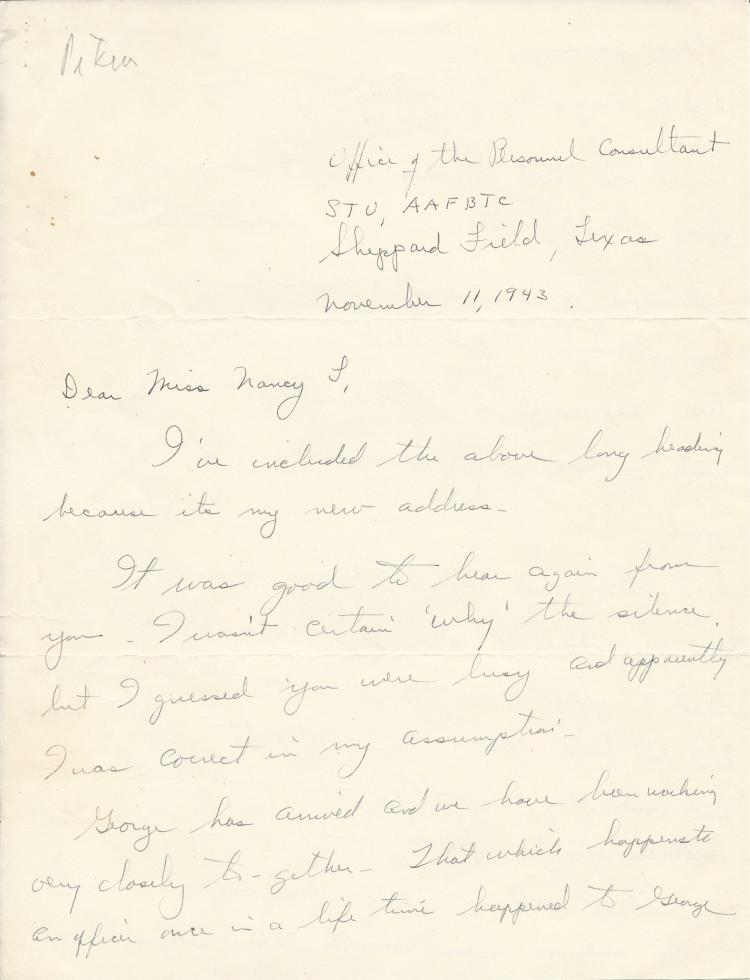 Pitkin
Office of the Personnel Consultant
STU, AAFBTC
Sheppard Field, Texas
November 11, 1943.
Dear Miss Nancy T,
I've included the above long heading
because its my new address-
It was good to hear again from
you - I wasn't certain 'why' the silence,
but I guessed you were busy and apparently
I was correct in my assumption-
George has arrived and we have been working
very closely to-gether- That which happens to
an officer once in a life time happened to George